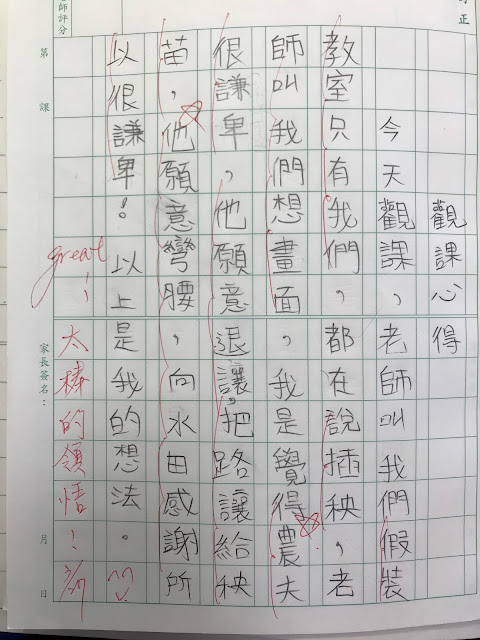 正
觀課心得
今天觀課，老師叫我們假裝
教室只有我們，都在說插秧，老
師叫我們想畫面，我是覺得農夫
很謙卑，他願意退讓，把路讓給秧
苗，他願意彎腰，向水田感謝所
以很謙卑！以上是我的想法。
great！
太棒的領悟！
師評分
第 課
家長簽名：
月 日